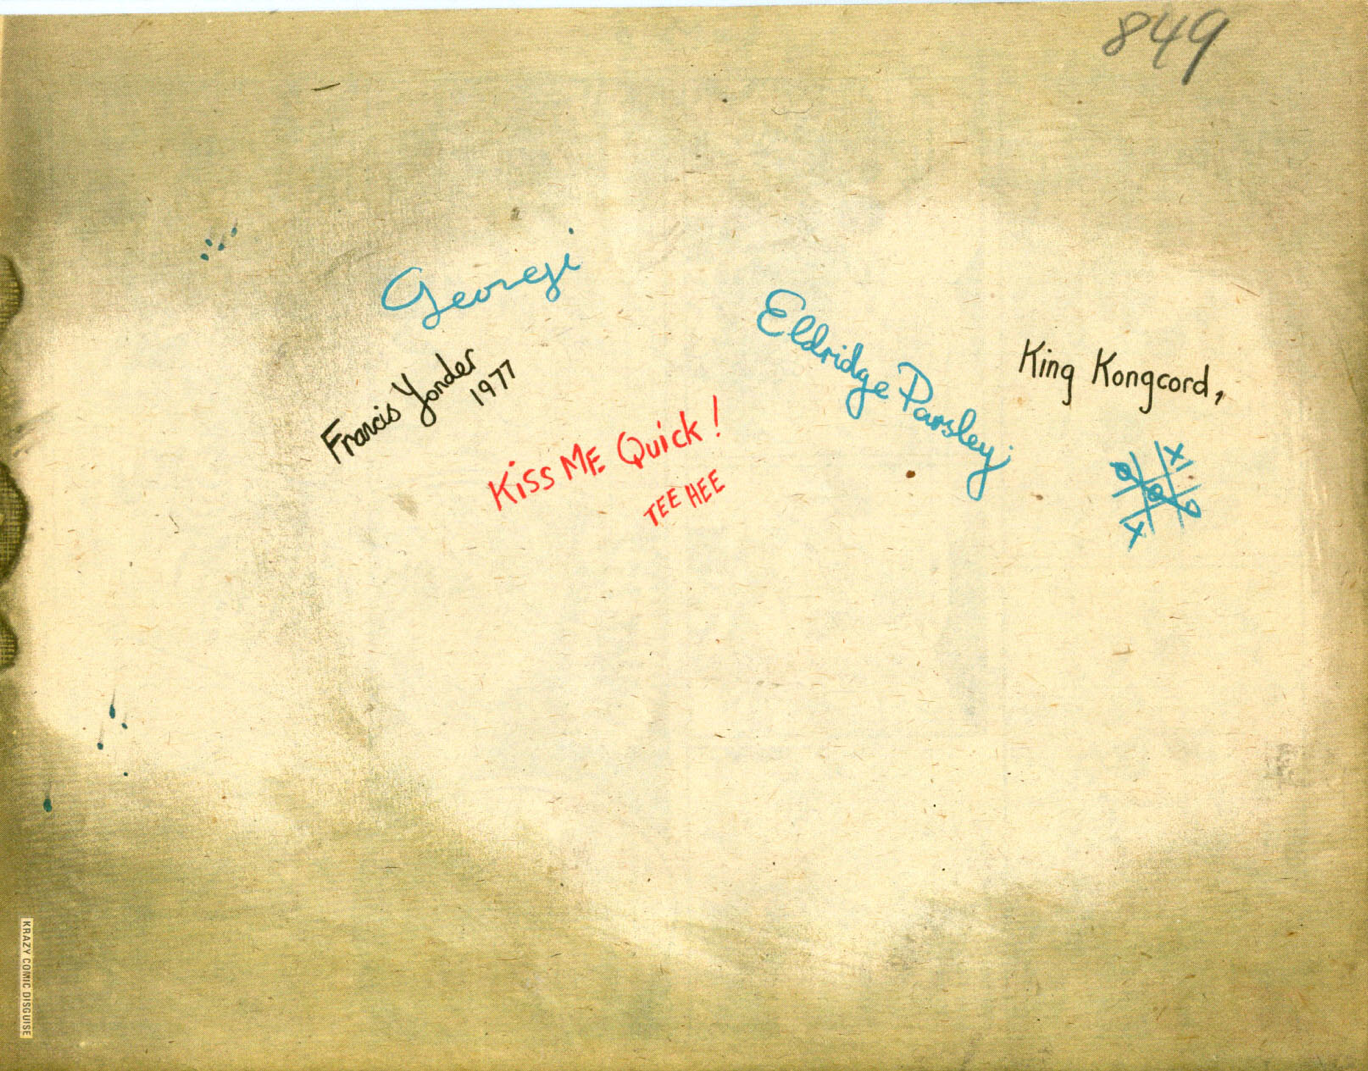 849
Georgi
Francis Yonder
1977
Kiss ME Quick!
TEE HEE
Eldridge Parsley.
King Kongcord,
KRAZY COMIC DISGUISE